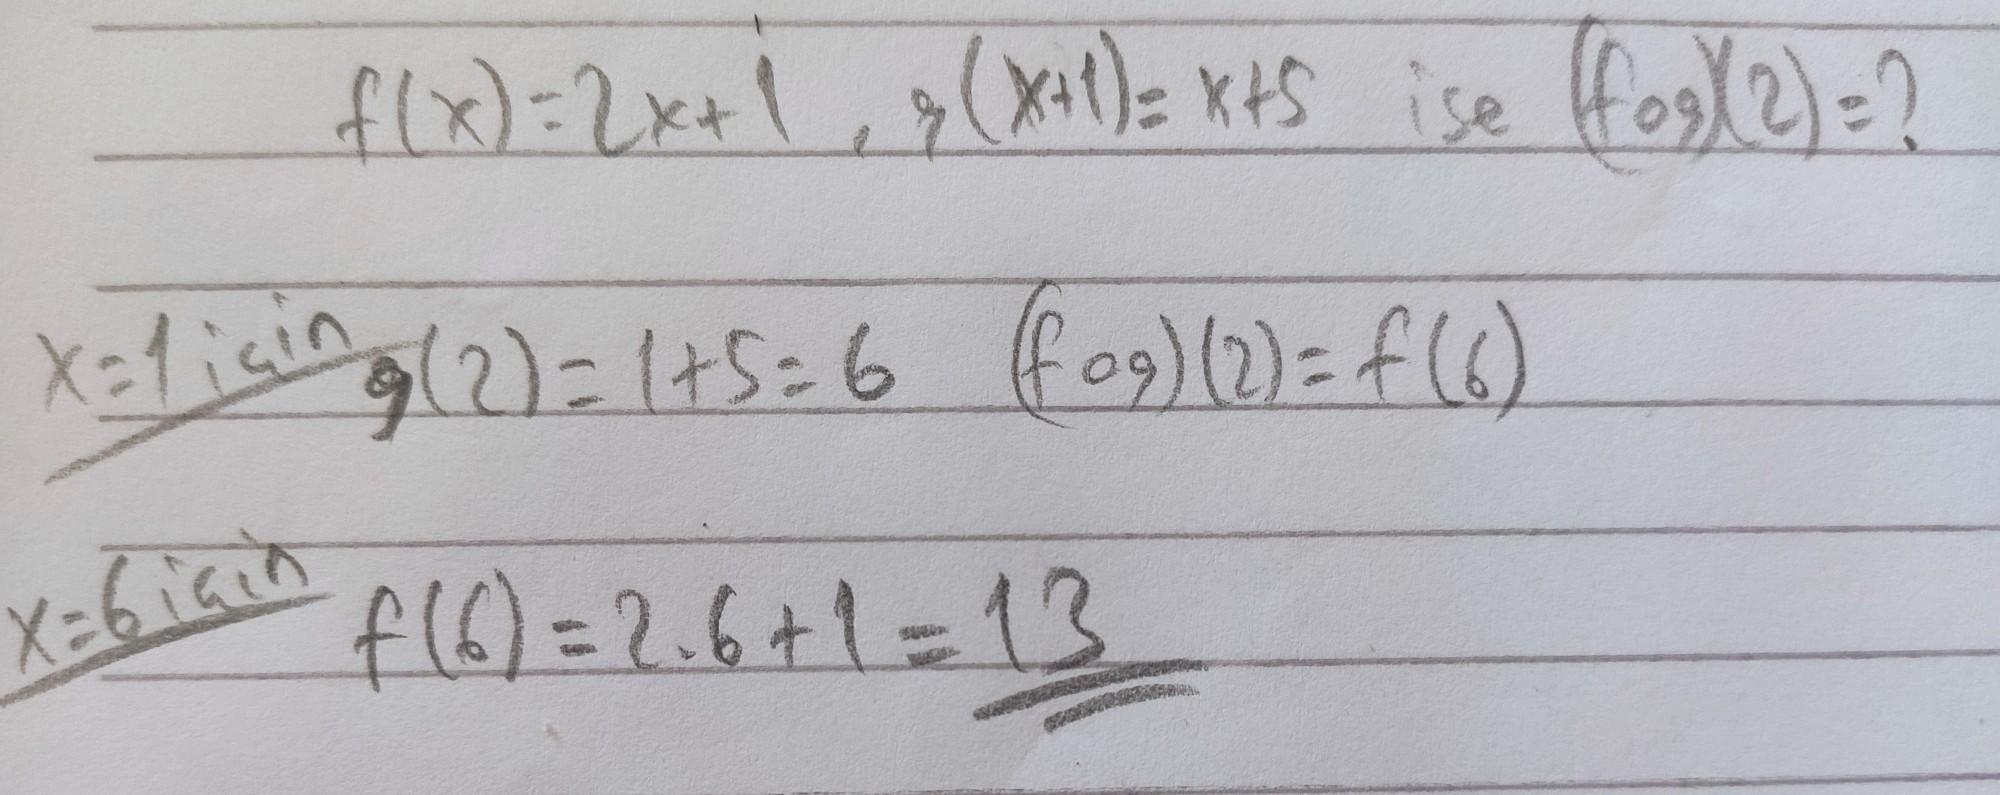 f(x)=2x+1, g(x+1)=x+5 ise (fog)(2)=?
x=1 için g(2)=1+5=6 (fog)(2)=f(6)
x=6 için f(6)=2.6+1=13